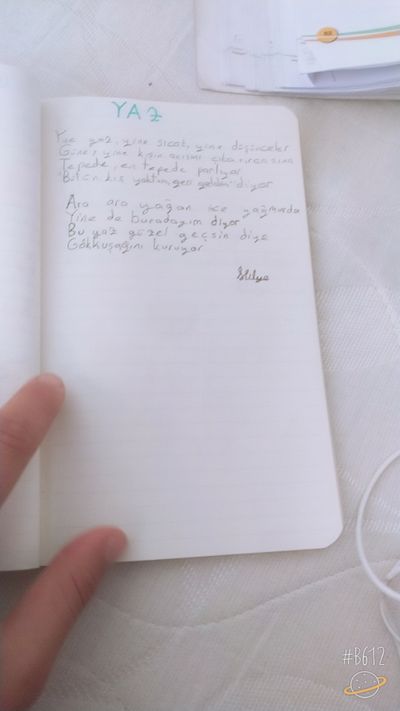 YAZ
Yine yaz, yine sıcak, yine düşünceler
Güneş yine kışın acısını çıkarırcasına
Tepede, en tepede parlıyor
"Bütün kış yoktum, geri geldim" diyor
Ara ara yağan ise yağmurda
Yine de buradayım diyor
Bu yaz güzel geçsin diye
Gökkuşağını kuruyor
#B612